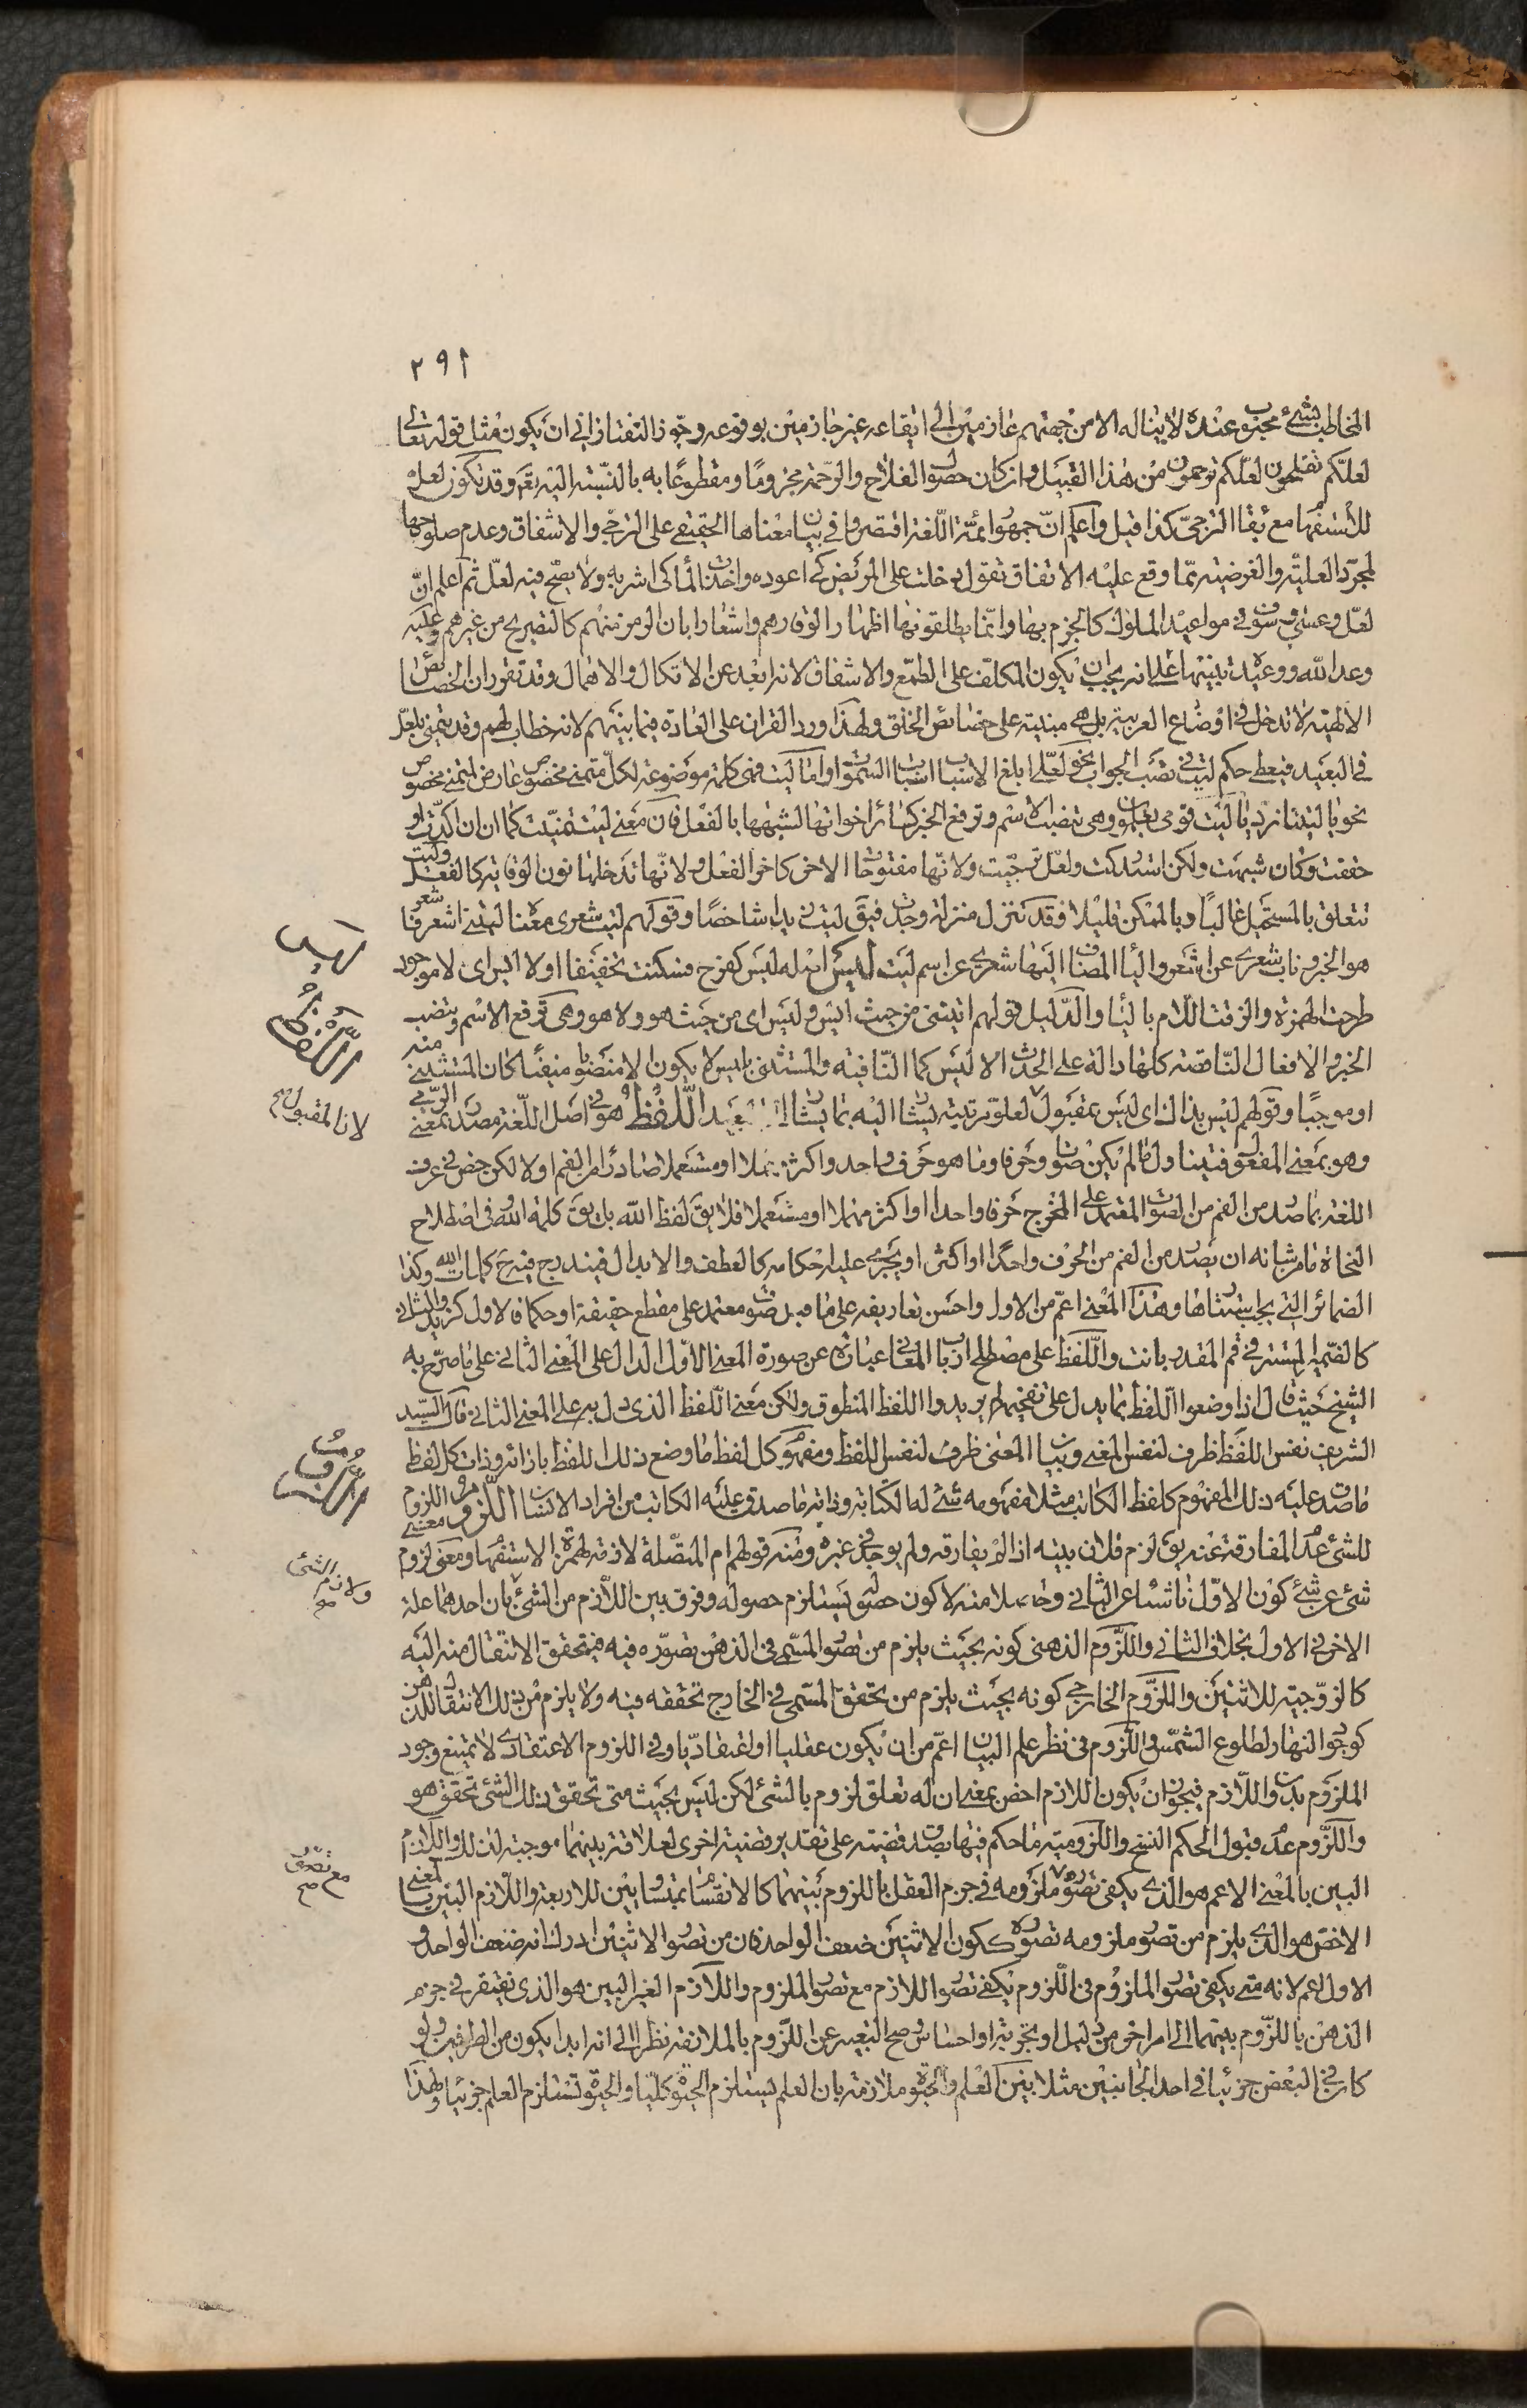 ٢٩١
المخاطب بشئ محبوب عنده لا يناله الا من جهتهم عازمين الى ايقاعه غير جازمين بوقوعه وجوز التفتازانى ان يكون مثل قوله تعالى
لعلكم تفلحون لعلكم ترحمون من هذا القبيل وان كان حصول الفلاح والرحمة مجزوما ومقطوعا به بالنسبة اليه تعم وقد تكون لعل
للاستفهام مع بقاء الترجى كذا قيل واعلم ان جمهور ائمة اللغة اقتصروا فى بيان معناها الحقيقى على الترجى والاشفاق وعدم صلوحها
لمجرد العلية والغرضية مما وقع عليه الاتفاق تقول دخلت على المريض كى اعوده واخذت الماء كى اشربه ولا يصح فيه لعل ثم اعلم ان
لعل وعسى وسوف فى مواعيد الملوك كالجزم بها وانما يطلقونها اظهارا لوقارهم واشعارا بان الرمز منهم كالتصريح من غيرهم وعليه
وعد الله ووعيده تنبيها على انه يجب ان يكون المكلف على الطمع والاشفاق لانه ابعد عن الاتكال والاهمال وقد تقرر ان الخصائص
الالهية لا تدخل فى اوضاع العربية بل هى مبنية على خصائص الخلق ولهذا ورد القران على العادة فيما بينهم لانه خطاب لهم وقد يتمنى بلعل
فى البعيد فيعطى حكم ليت فى نصب الجواب نحو لعلى ابلغ الاسباب اسباب السموات واما ليت فهى كلمة موضوعة لكل متمنى مخصوص عارض لمتمنى مخصوص
نحو يا ليتنا نرد يا ليت قومى يعلمون وهى تنصب الاسم وترفع الخبر كسائر اخواتها لشبهها بالفعل فان معنى ليت تمنيت كما ان ان اكدت او
حققت وكان شبهت ولكن استدركت ولعل ترجيت ولانها مفتوحات الاخر كاخر الفعل ولانها تدخلها نون الوقاية كالفعل وليت
تتعلق بالمستحيل غالبا وبالممكن قليلا وقد تنزل منزلة وجدت فيق ليت زيدا شاخصا وقولهم ليت شعرى معناه ليتنى اشعر فاشعر
هو الخبر وناب شعرى عن اشعر والياء المضاف اليها شعرى عن اسم ليت ليس اصله ليس كفرح فسكنت تخفيفا او لا ايس اى لا موجود
طرحت الهمزة والزقت اللام بالياء والدليل قولهم ايتنى من حيث ايس وليس اى من حيث هو ولا هو وهى ترفع الاسم وينصب
الخبر والافعال الناقصة كلها دالة على الحدث الا ليس كما النافية والمستثنى بليس لا يكون الا منصوبا منفيا كان المستثنى منه
او موجبا وقولهم ليس بذاك اى ليس بمقبول لعلو مرتبته يشار اليه بما يشار الى البعيد اللفظ هو فى اصل اللغة مصدر بمعنى الرمى
وهو بمعنى المفعول فيتناول ما لم يكن صوتا وحرفا وما هو حرف واحد واكثر مهملا او مستعملا صادرا من الفم او لا لكن خص فى عرف
اللغة بما صدر من الفم من الصوت المعتمد على المخرج حرفا واحدا او اكثر مهملا او مستعملا فلا يق لفظ الله بل يق كلمة الله وفى اصطلاح
النحاة ما من شانه ان يصدر من الفم من الحرف واحدا او اكثر او يجرى عليه احكامه كالعطف والابدال فيندرج فيه ح كلمات الله وكذا
الضمائر التى يجب استتارها وهذا المعنى اعم من الاول واحسن تعاريفه على ما قيل صوت معتمد على مقطع حقيقة او حكما فالاول كزيد والثانى
كالضمير المستتر فى قم المقدر بانت واللفظ على مصطلح ارباب المعانى عبارة عن صورة المعنى الاول الدال على المعنى الثانى على ما صرح به
الشيخ حيث قال اذا وضعوا اللفظ بما يدل على تفخيمه لم يريدوا اللفظ المنطوق ولكن معنى اللفظ الذى دل به على المعنى الثانى قال السيد
الشريف نفس اللفظ ظرف لنفس المعنى وبيان المعنى ظرف لنفس اللفظ ومفهوم كل لفظ ما وضع ذلك اللفظ بازائه وذات كل لفظ
ما صدق عليه ذلك المفهوم كلفظ الكاتب مثلا مفهومه شئ له الكتابة وذاته ما صدق عليه الكاتب من افراد الانسان اللزوم معنى اللزوم
للشئ عدم المفارقة عنه يق لزم فلان بيته اذا لم يفارقه ولم يوجد فى غيره ومنه قولهم ام المتصلة لازمة لهمزة الاستفهام ومعنى لزوم
شئ عن شئ كون الاول ناشئا عن الثانى وحاصلا منه لا كون حصوله يستلزم حصوله وفرق بين اللازم من الشئ بان احدهما علة
الاخر فى الاول بخلاف الثانى واللزوم الذهنى كونه بحيث يلزم من تصور المسمى فى الذهن تصوره فيه فيتحقق الانتقال منه اليه
كالزوجية للاثنين واللزوم الخارجى كونه بحيث يلزم من تحقق المسمى فى الخارج تحققه فيه ولا يلزم من ذلك الانتقال للذهن
كوجود النهار لطلوع الشمس واللزوم فى نظر علم البيان اعم من ان يكون عقليا او اعتقاديا وفى اللزوم الاعتقادى لا يمتنع وجود
الملزوم بدون اللازم فيجوز ان يكون اللازم اخص بمعنى ان له تعلق لزوم بالشئ لكن ليس بحيث متى تحقق ذلك الشئ تحقق هو
واللزوم عدم قبول الحكم النسخ واللزومية ما حكم فيها بصدق قضية على تقدير قضية اخرى لعلاقة بينهما موجبة لذلك واللازم
البين بالمعنى الاعم هو الذى يكفى تصور ملزومه فى جزم العقل باللزوم بينهما كالانقسام بمتساويين للاربعة واللازم البين بالمعنى
الاخص هو الذى يلزم من تصور ملزومه تصوره ككون الاثنين ضعف الواحد فان من تصور الاثنين ادرك انه ضعف الواحد و
الاول اعم لانه متى يكفى تصور الملزوم فى اللزوم يكفى تصور اللازم مع تصور الملزوم واللازم الغير البين هو الذى يفتقر فى جزم
الذهن باللزوم بينهما الى امر اخر من دليل او تجربة او احساس وصح التعبير عن اللزوم بالملازمة نظرا الى انه ابدا يكون من الطرفين ولو
كان فى البعض جزئيا فى احد الجانبين مثلا بين العلم والحيوة ملازمة بان العلم يستلزم الحيوة كليا والحيوة تستلزم العلم جزئيا ولهذا
ليس
اللفظ
لان المقبول صح
اللزوم
ولازم الشئ صح
مع تصور صح